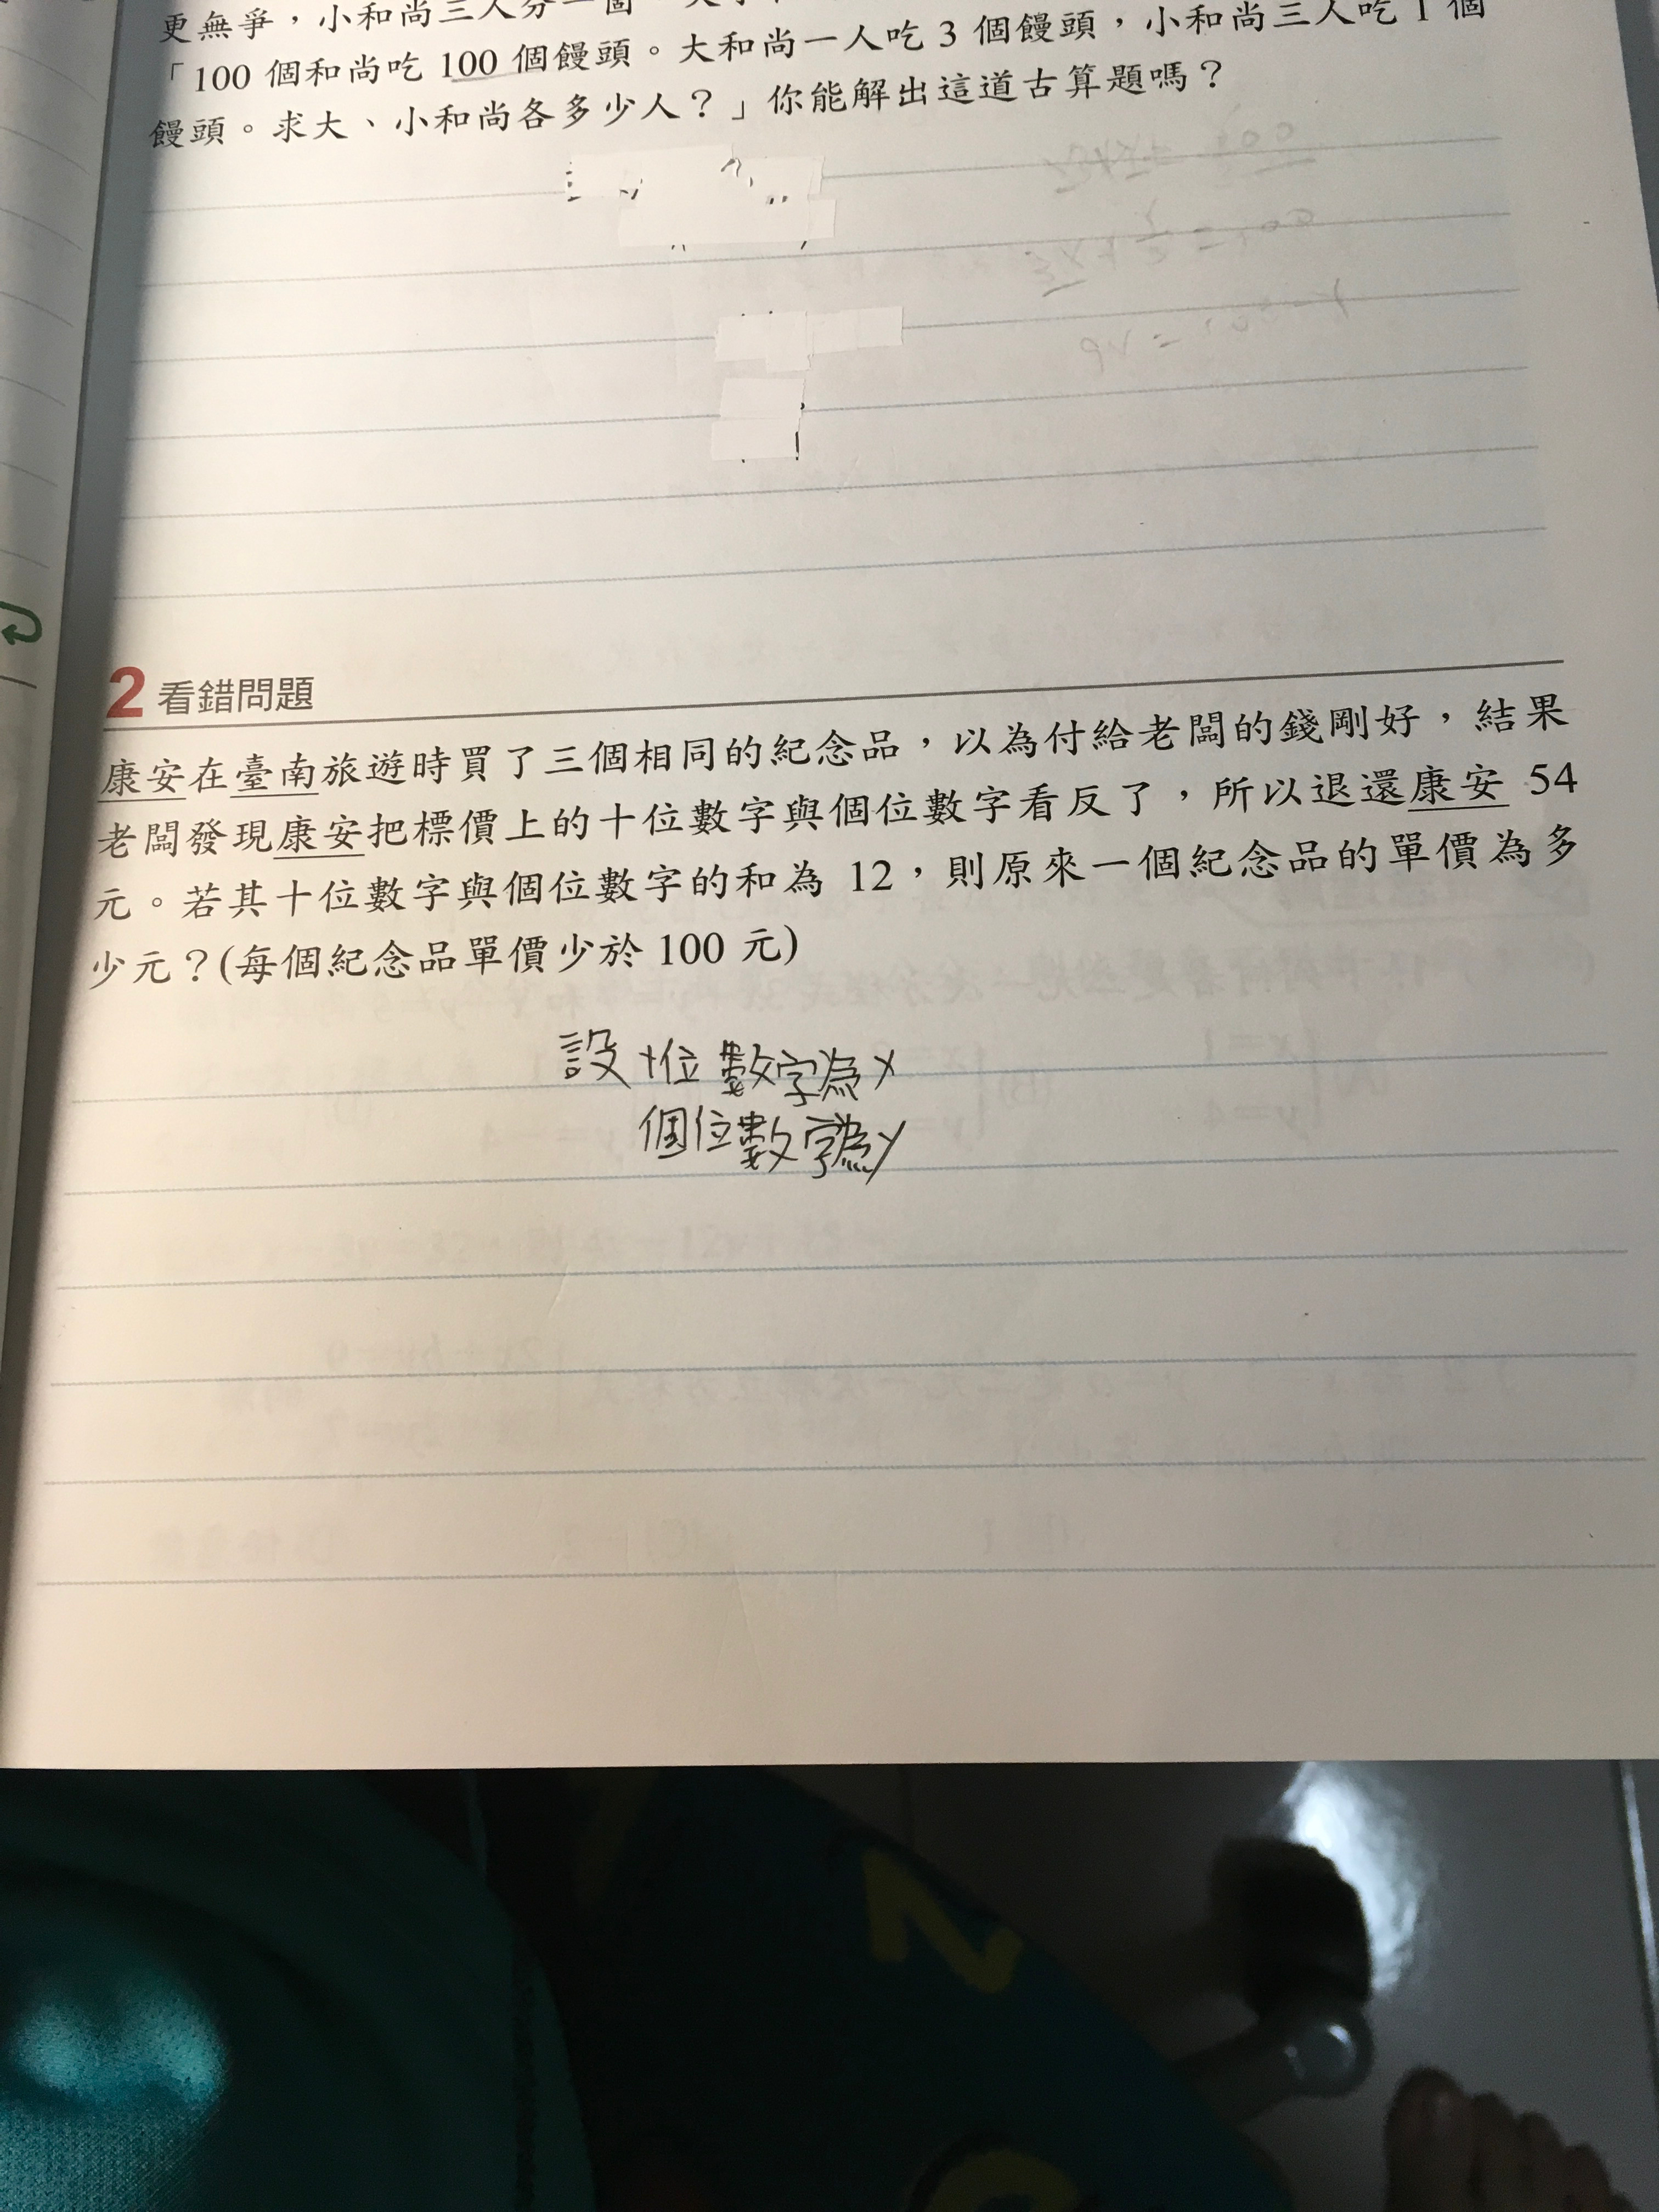 更無爭，小和尚三人分一個
「100 個和尚吃 100 個饅頭。大和尚一人吃 3 個饅頭，小和尚三人吃 1 個
饅頭。求大、小和尚各多少人？」你能解出這道古算題嗎？
2 看錯問題
康安在臺南旅遊時買了三個相同的紀念品，以為付給老闆的錢剛好，結果
老闆發現康安把標價上的十位數字與個位數字看反了，所以退還康安 54
元。若其十位數字與個位數字的和為 12，則原來一個紀念品的單價為多
少元？(每個紀念品單價少於 100 元)
設十位數字為x
個位數字為y